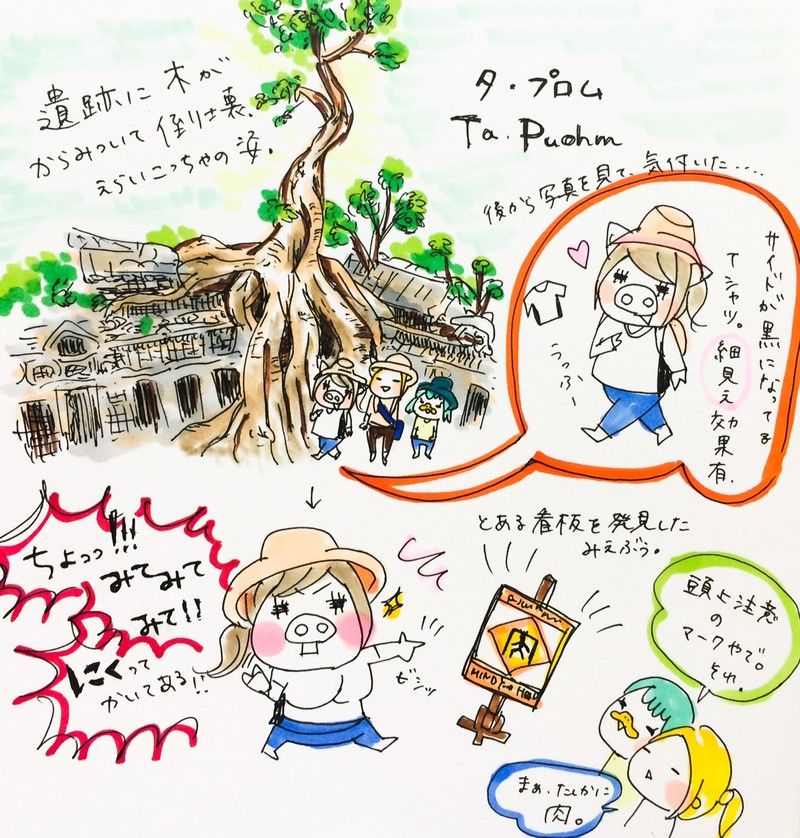 遺跡に 木が
からみついて 倒り寸裏、
えらいこっちゃの 姿。
タ・プロム
Ta. Puohm
後から写真を見て、気付いた‥‥
サイドが黒になってる
Tシャツ。
細見え効果有。
うっふー
ちょっっ!!!
みてみて
みて!!
にくって
かいてある!!
ビシッ
とある看板を発見した
みえぶう。
肉
MIND
頭上注意
の
マークやで。
それ。
まぁ、たしかに
肉。